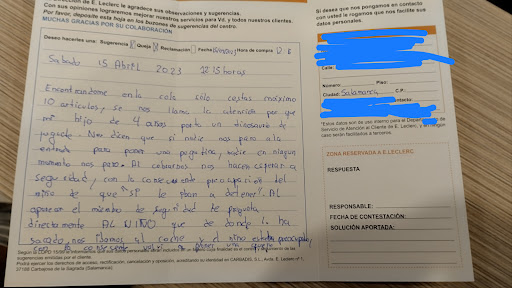 ección de E. Leclerc agradece sus observaciones y sugerencias.
Con sus opiniones lograremos mejorar nuestros servicios para Vd. y todos nuestros clientes.
Por favor, deposite esta hoja en los buzones de sugerencias del centro.
MUCHAS GRACIAS POR SU COLABORACIÓN
Deseo hacerles una: Sugerencia Queja Reclamación Fecha Hora de compra
Sabado 15 Abril 2023 12 15 horas
Encontrandome en la cola cestas maximo
10 articulos, se nos llama la atención por que
mi hijo de 4 años porta un dinosaurio de
juguete. Nos dicen que si nadie nos paro a la
entrada para poner una pegatina, nadie en ningun
momento nos paro. Al cobrarnos nos hacen esperar a
seguridad, con la consecuente preocupacion del
niño de que "si le iban a detener". Al
aparecer el miembro de seguridad le pregunta
directamente AL NIÑO que de donde lo ha
sacado, nos vamos al coche y el niño estaba preocupado,
con la
Podrá ejercer los derechos de acceso, rectificación, cancelación y oposición, acreditando su identidad en CARBADIS, S.L., Avda. E. Leclerc nº 1,
37188 Carbajosa de la Sagrada (Salamanca)
Si desea que nos pongamos en contacto
con usted le rogamos que nos facilite sus
datos personales.
Calle:
Número: Piso:
Ciudad: Salamanca C.P.:
contacto:
*Estos datos son de uso interno para el
de Servicio de Atención al Cliente de E. Leclerc, y en ningún
caso serán facilitados a terceros.
ZONA RESERVADA A E.LECLERC
RESPUESTA
RESPONSABLE:
FECHA DE CONTESTACIÓN:
SOLUCIÓN APORTADA: